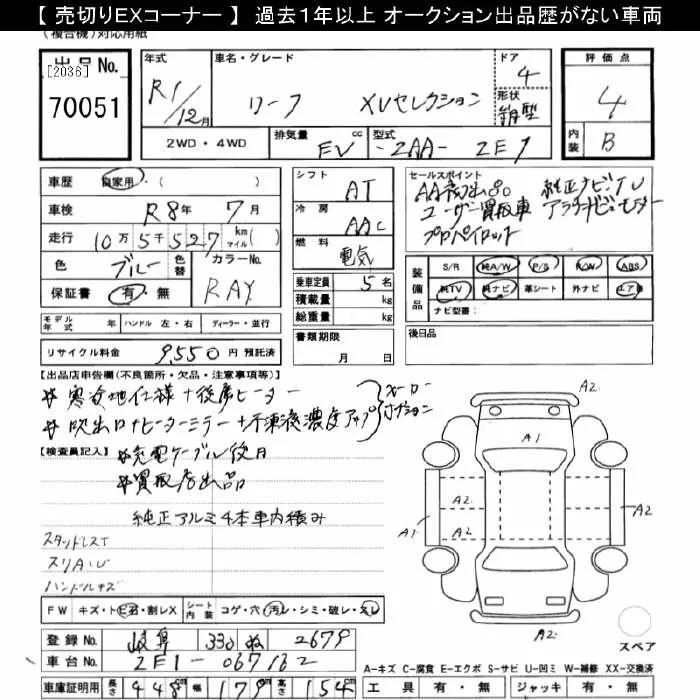 【 売切りEXコーナー 】 過去1年以上 オークション出品歴がない車両
(複合機)対応用紙
出品No.
[2036]
70051
年式
R1/12月
車名・グレード
リーフ XVセレクション
ドア
4
形状
箱型
評価点
4
内装
B
2WD・4WD
排気量 EV cc
型式 -ZAA- ZE1
車歴 自家用・( )
車検 R8年7月
走行 10万5千527km マイル( )
色 ブルー 色替
カラーNo. RAY
保証書 有・無
シフト AT
冷房 AAC
燃料 電気
乗車定員 5名
積載量 kg
総重量 kg
書類期限
月 日
セールスポイント
純正ナビTV
ユーザー買取車 アラウンドビューモニター
プロパイロット
装備品
S/R 純A/W P/S P/W ABS
純TV 純ナビ 革シート 外ナビ エアB
ナビ型番:
後日品
モデル年式 年 ハンドル 左・右 ディーラー・並行
リサイクル料金 9,550円 預託済
【出品店申告欄(不良箇所・欠品・注意事項等)】
*寒冷地仕様+後席ヒーター
*吹出口+ヒーターミラー+不凍液濃度アップ
メーカーオプション
【検査員記入】
*充電ケーブル使用
*買取店出品
純正アルミ4本車内積み
スタッドレスT
スリA・U
ハンドルキズ
FW キズ・ト ヒ石・割レX シート内装 コゲ・穴・汚レ・シミ・破レ・スレ
登録No. 岐阜 330 ぬ 2679
車台No. ZE1-067162
車庫証明用 長さ 448cm 幅 179cm 高さ 154cm
A2
A1
A2
A2
A1
A2
A2
A2
スペア
A-キズ C-腐食 E-エクボ S-サビ U-凹ミ W-補修 XX-交換済
工具 有・無 ジャッキ 有・無